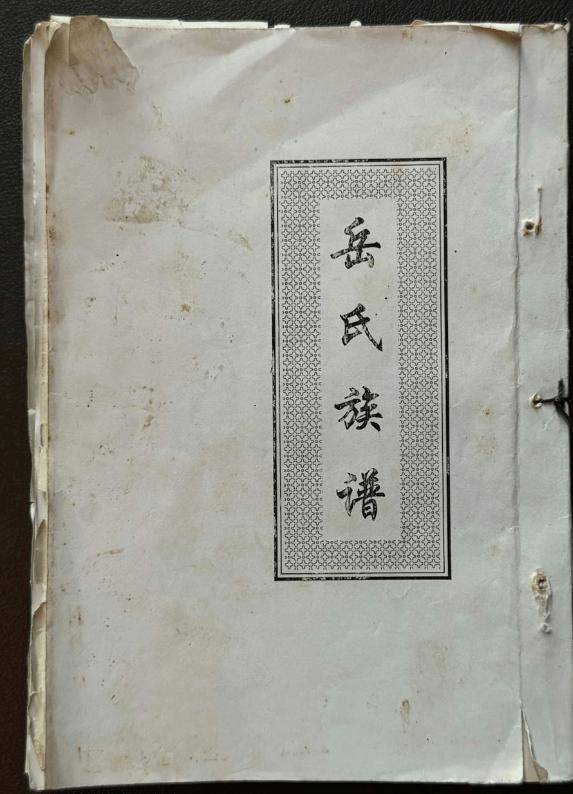 岳氏族谱